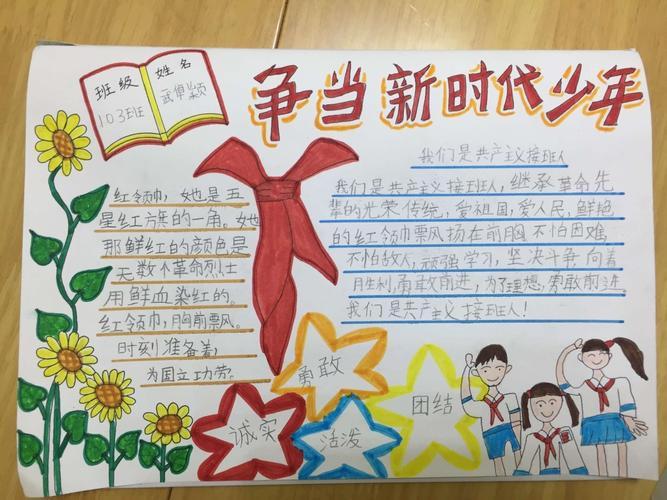 班级 姓名
103班 武卓颖
争当新时代少年
红领巾，她是五
星红旗的一角。她
那鲜红的颜色是
无数个革命烈士
用鲜血染红的。
红领巾，胸前飘风。
时刻准备着，
为国立功劳。
我们是共产主义接班人
我们是共产主义接班人，继承革命先
辈的光荣传统，爱祖国，爱人民，鲜艳
的红领巾飘风扬在前胸。不怕困难
不怕敌人，顽强学习，坚决斗争，向着
月生利勇敢前进，为了理想，勇敢前进
我们是共产主义接班人！
勇敢
诚实
活泼
团结